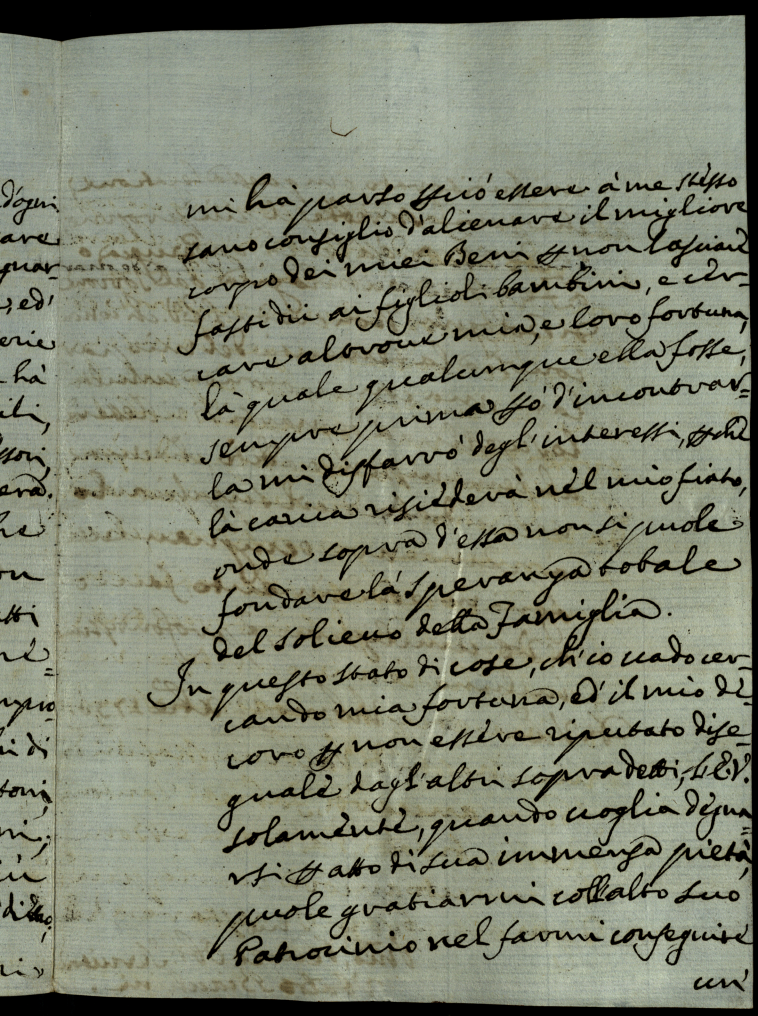 mi hà parso p ciò essere à me stesso
sano consiglio d'alienare il migliore
corpo dei miei Beni p non lasciare
fastidii ai figlioli bambini, e cer-
care altrove mia, e loro fortuna,
là quale qualunque ella fosse,
sempre prima p ò d'incontrar=
la mi disfarrò degl'interessi, p chè
là carica risiederà nèl mio fiato,
onde sopra d'essa non si puole
fondare là speranza totale
del solievo della Famiglia.
In questo stato di cose, ch'io vado cer-
cando mia fortuna, ed' il mio de=
coro p non essère riputato dise=
guale dagl'altri sopradetti, L'E.V.
solamènte, quando voglia dègna=
rsi p atto di sua immensa pietà,
puole gratiarmi coll'alto suo
Patrocinio nel farmi conseguire
un
d'ogni
are
guar-
, ed'
erie
hà
ili,
ssori,
era.
he
on
atti
nè=
mpio
hi di
toni,
ni;
iù